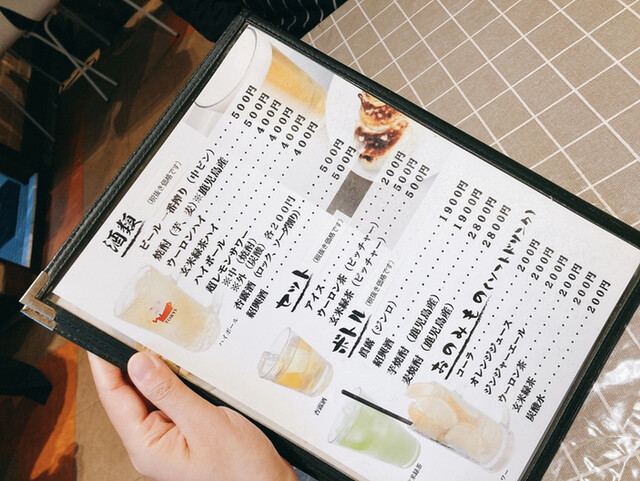 酒類 (税抜き価格です)
ビール 一番搾り (中ビン) 500円
焼酎 (芋・麦) ※鹿児島産 500円
ウーロンハイ 400円
玄米緑茶ハイ 400円
ハイボール 400円
超レモンサワー 400円
※中 (焼酎)
※外 (炭酸) 各200円
杏露酒 (ロック、ソーダ割り) 500円
紹興酒 500円
セット (税抜き価格です)
アイス 200円
ウーロン茶 (ピッチャー) 500円
玄米緑茶 (ピッチャー) 500円
ボトル (税抜き価格です)
眞露 (ジンロ) 1900円
紹興酒 1900円
芋焼酎 (鹿児島産) 2800円
麦焼酎 (鹿児島産) 2800円
おのみもの (ソフトドリンク)
コーラ 200円
オレンジジュース 200円
ジンジャーエール 200円
ウーロン茶 200円
玄米緑茶 200円
炭酸水 200円
TORYS
ハイボール
杏露酒